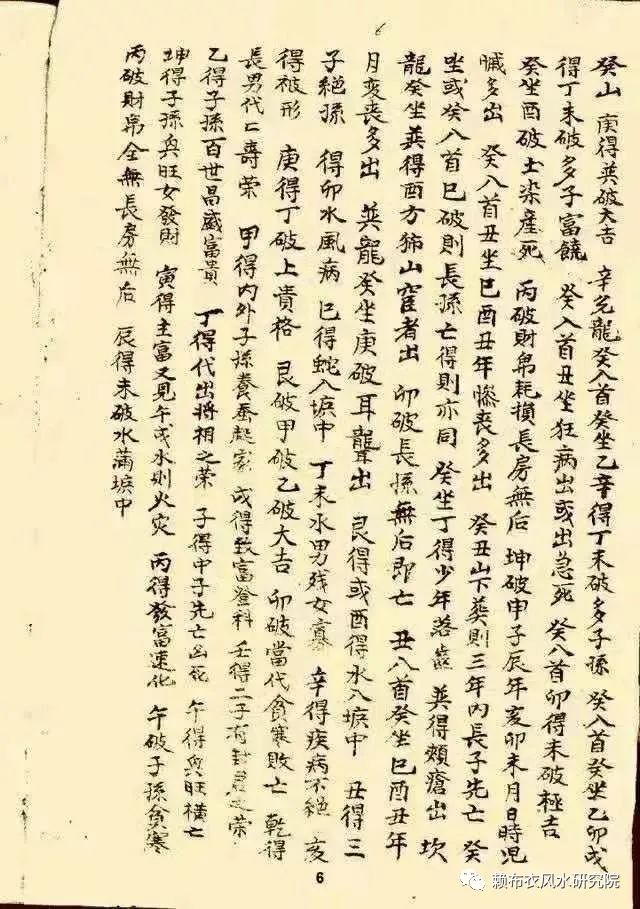 6
癸山 庚得巽破大吉 辛兌龍癸入首癸坐乙辛得丁未破多子孫 癸入首癸坐乙卯戌
得丁未破多子富饒 癸入首丑坐狂病出或出急死 癸八首卯得未破極吉
癸坐酉破土染産死 丙破財帛耗損長房無后 坤破甲子辰年亥卯未月日時児
多出 癸八首丑坐巳酉丑年慘喪多出 癸丑山下葬則三年內長子先亡 癸
坐或癸八首巳破則長孫亡得則亦同 癸坐丁得少年落齒 巽得頰瘡出 坎
龍癸坐巽得酉方狮山窺者出 卯破長孫無后即亡 丑八首癸坐巳酉丑年
月变喪多出 巽龍癸坐庚破耳聾出 艮得或酉得水八塚中 丑得三
子絕孫 得卯水風病 巳得蛇入塚中 丁未水男残女寡 辛得疾病不絕 亥
得被形 庚得丁破上貴格 艮破甲破乙破大吉 卯破當代貧寒敗亡 乾得
長男代亡壽荣 甲得內外子孫養蚕起家 戌得致富登科 壬得二子有封君之荣
乙得子孫百世昌盛富貴 丁得代出將相之荣 子得中子先亡凶死 午得與旺横亡
坤得子孫與旺女發財 寅得主富又見午戌水則火灾 丙得發富速化 午破子孫貧寒
丙破財帛全無長房無后 辰得未破水滿塚中
6
赖布衣风水研究院